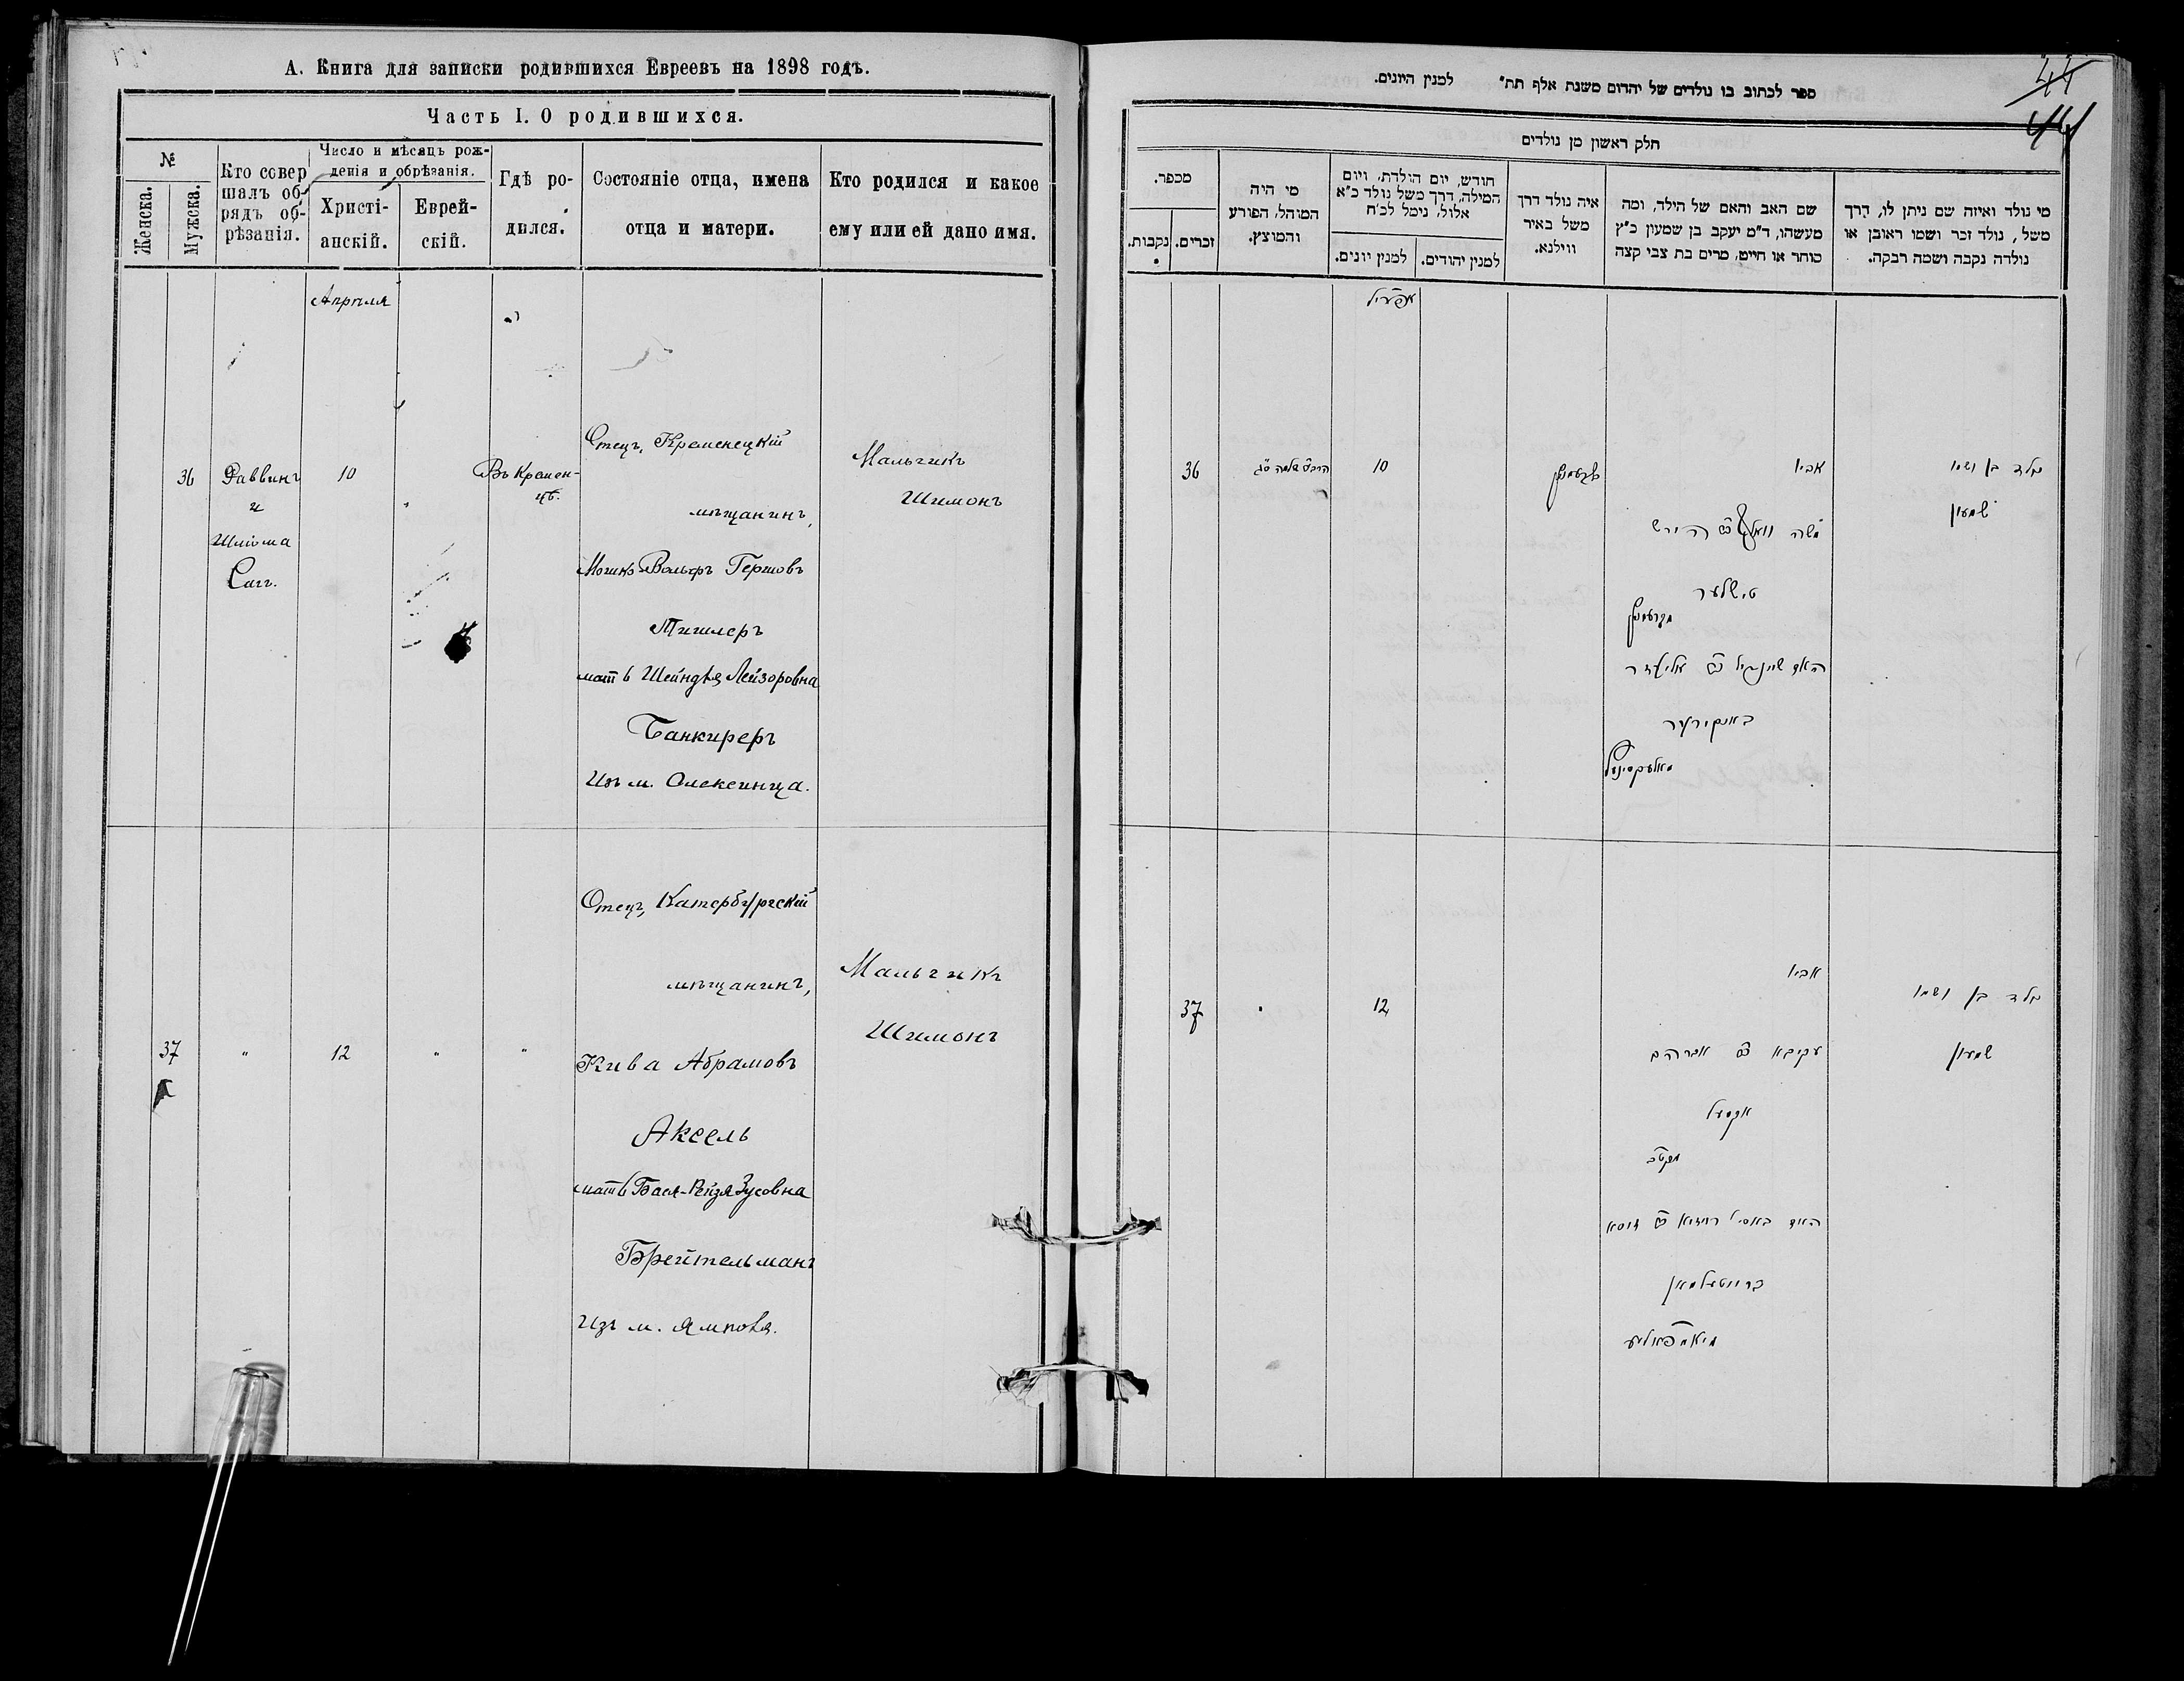 А. Книга для записки родившихся Евреевъ на 1898 годъ.
Часть I. О родившихся.
№
Женска.
Мужска.
Кто совер
шалъ об-
рядъ об-
рѣзанія.
Число и мѣсяцъ рож-
денія и обрѣзанія.
Христі-
анскій.
Еврей-
скій.
Гдѣ ро-
дился.
Состояніе отца, имена
отца и матери.
Кто родился и какое
ему или ей дано имя.
Апрѣля
36
Раввинъ
и
Шлиома
Сагг.
10
Въ Кремен-
цѣ.
Отецъ, Кременецкій
мѣщанинъ,
Мошко Вольфъ Гершовъ
Тишлеръ
мать Шейндля Лейзоровна
Банкиреръ
Изъ м. Олексинца.
Мальчикъ
Шимонъ
37
"
12
"
"
Отецъ, Катербургскій
мѣщанинъ,
Кива Абрамовъ
Аксель
мать Бася-Рейзя Зусовна
Брейтельманъ
Изъ м. Ямполя.
Мальчикъ
Шимонъ
44
44
ספר לכתוב בו נולדים של יהדום משנת אלף תת״ למנין היונים.
חלק ראשון מן נולדים
מי נולד ואיזה שם ניתן לו, דרך
משל, נולד זכר ושמו ראובן או
נולדה נקבה ושמה רבקה.
שם האב והאם של הילד, ומה
מעשהו, ד״מ יעקב בן שמעון כ״ץ
סוחר או חייט, מרים בת צבי קצה
איה נולד דרך
משל באיר
ווילנא.
חודש, יום הולדת, ויום
המילה, דרך משל נולד כ״א
אלול, נימל לכ״ח
למנין יהודים.
למנין יונים.
מי היה
המוהל, הפורע
והמוצץ.
מכפר.
זכרים.
נקבות.
אפריל
נולד בן ושמו
שמעון
אביו
משה וואלף ב״ר הירש
טישלער
מקרעמניץ
האם שיינדיל ב״ר אליעזר
באנקירער
מאלעקסיניץ
קרעמניץ
10
36
נולד בן ושמו
שמעון
אביו
עקיבא ב״ר אברהם
אקסעל
האם באסי רייזיא ב״ר זוסא
ברייטעלמאן
מיאמפאליע
12
37